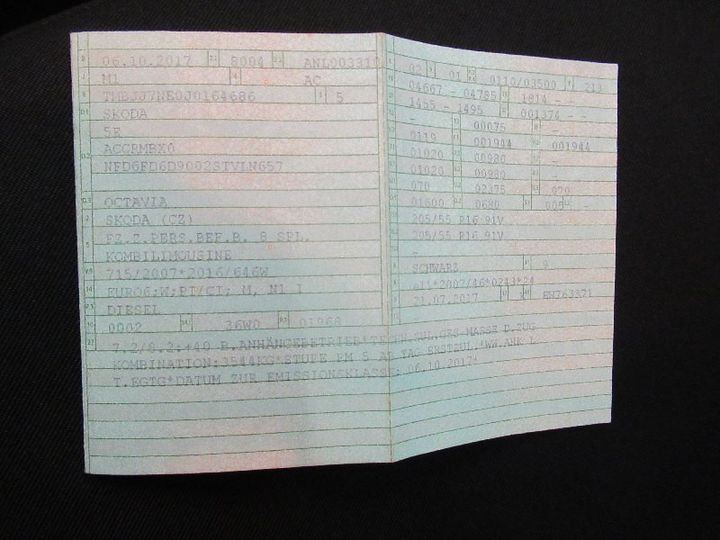 06.10.2017 8004 ANL003310
M1 AC
5
SKODA
5E
ACCRMBX0
NFD6FD6D9002STVLN657
OCTAVIA
SKODA (CZ)
FZ.Z.PERS.BEF.B. 8 SPL.
KOMBILIMOUSINE
715/2007*2016/646W
EURO6;W;PI/CI; M, N1 I
DIESEL
0002 36W0 01968
7.2/8.2:+40 B.ANHÄNGEBETRIEB*TECHN.ZUL.GES-MASSE D.ZUG
KOMBINATION:3544KG*STUFE PM 5 AB TAG ERSTZUL.*WW.AHK L
T.EGTG*DATUM ZUR EMISSIONSKLASSE: 06.10.2017*
02 01 0110/03500 213
04667 - 04795 1814 - -
1455 - 1495 001374 - -
- 00075 -
0119 001944 001944
01020 00980 -
01020 00980 -
070 02375 070
01600 0680 005 -
205/55 R16 91V
205/55 R16 91V
-
SCHWARZ 9
e11*2007/46*0243*24
21.07.2017